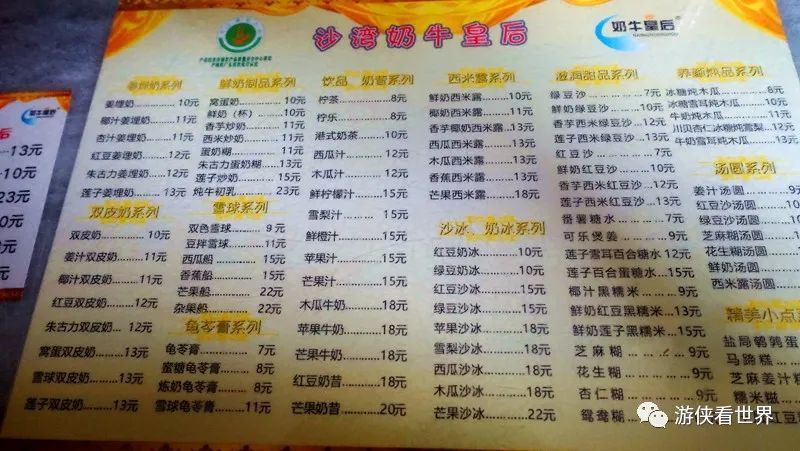 沙湾奶牛皇后
奶牛皇后®
姜埋奶系列
姜埋奶..........10元
椰汁姜埋奶......11元
杏汁姜埋奶......11元
红豆姜埋奶......12元
朱古力姜埋奶....13元
莲子姜埋奶......13元
双皮奶系列
双皮奶..........10元
姜汁双皮奶......11元
椰汁双皮奶......11元
红豆双皮奶......12元
朱古力双皮奶....13元
窝蛋双皮奶......13元
雪球双皮奶......13元
莲子双皮奶......13元
鲜奶制品系列
窝蛋奶..........10元
鲜奶（杯）......10元
香芋炒奶........11元
西米炒奶........11元
蛋奶糊..........11元
朱古力蛋奶糊....13元
莲子炒奶........15元
炖牛初乳........23元
雪球系列
双色雪球........9元
豆拌雪球........11元
西瓜船..........15元
香蕉船..........15元
芒果船..........22元
杂果船..........22元
龟苓膏系列
龟苓膏..........7元
蜜糖龟苓膏......8元
炼奶龟苓膏......8元
雪球龟苓膏......11元
饮品 奶昔系列
柠茶............8元
柠乐............8元
港式奶茶........10元
西瓜汁..........12元
木瓜汁..........12元
鲜柠檬汁........15元
雪梨汁..........15元
鲜橙汁..........15元
苹果汁..........15元
芒果汁..........15元
木瓜牛奶........18元
苹果牛奶........18元
芒果牛奶........18元
红豆奶昔........18元
芒果奶昔........20元
西米露系列
鲜奶西米露......10元
椰奶西米露......11元
香芋椰奶西米露..13元
木瓜西米露......13元
香蕉西米露......13元
芒果西米露......18元
沙冰、奶冰系列
红豆奶冰........10元
绿豆奶冰........10元
红豆沙冰........15元
绿豆沙冰........15元
苹果沙冰........18元
雪梨沙冰........18元
西瓜沙冰........18元
木瓜沙冰........18元
芒果沙冰........22元
滋润甜品系列
绿豆沙..........7元
鲜奶绿豆沙......10元
香芋西米绿豆沙..12元
莲子西米绿豆沙..13元
红豆沙..........7元
鲜奶红豆沙......10元
香芋西米红豆沙..12元
莲子西米红豆沙..13元
番薯糖水........7元
可乐煲姜........9元
莲子雪耳百合糖水 12元
莲子百合蛋糖水..12元
椰汁黑糯米......9元
鲜奶红豆黑糯米..13元
鲜奶莲子黑糯米..15元
芝麻糊..........9元
花生糊..........9元
杏仁糊
鸳鸯糊
冰糖炖木瓜......8元
冰糖雪耳炖木瓜
牛奶炖木瓜......11元
川贝杏仁冰糖炖雪梨
牛奶雪耳炖木瓜
汤圆系列
姜汁汤圆
红豆沙汤圆
绿豆沙汤圆
芝麻糊汤圆
花生糊汤圆
鲜奶汤圆
西米露汤圆
精美小点
盐局鹌鹑蛋
马蹄糕
芝麻姜汁糕
糯米糍
奶牛皇后
后
-13元
-10元
23元
0元
元
游侠看世界